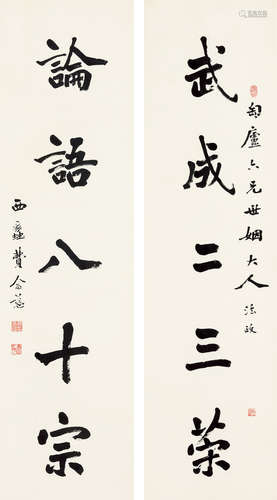 匋廬六兄世姻大人 法政
武成二三策
論語八十宗
西蠡費念慈